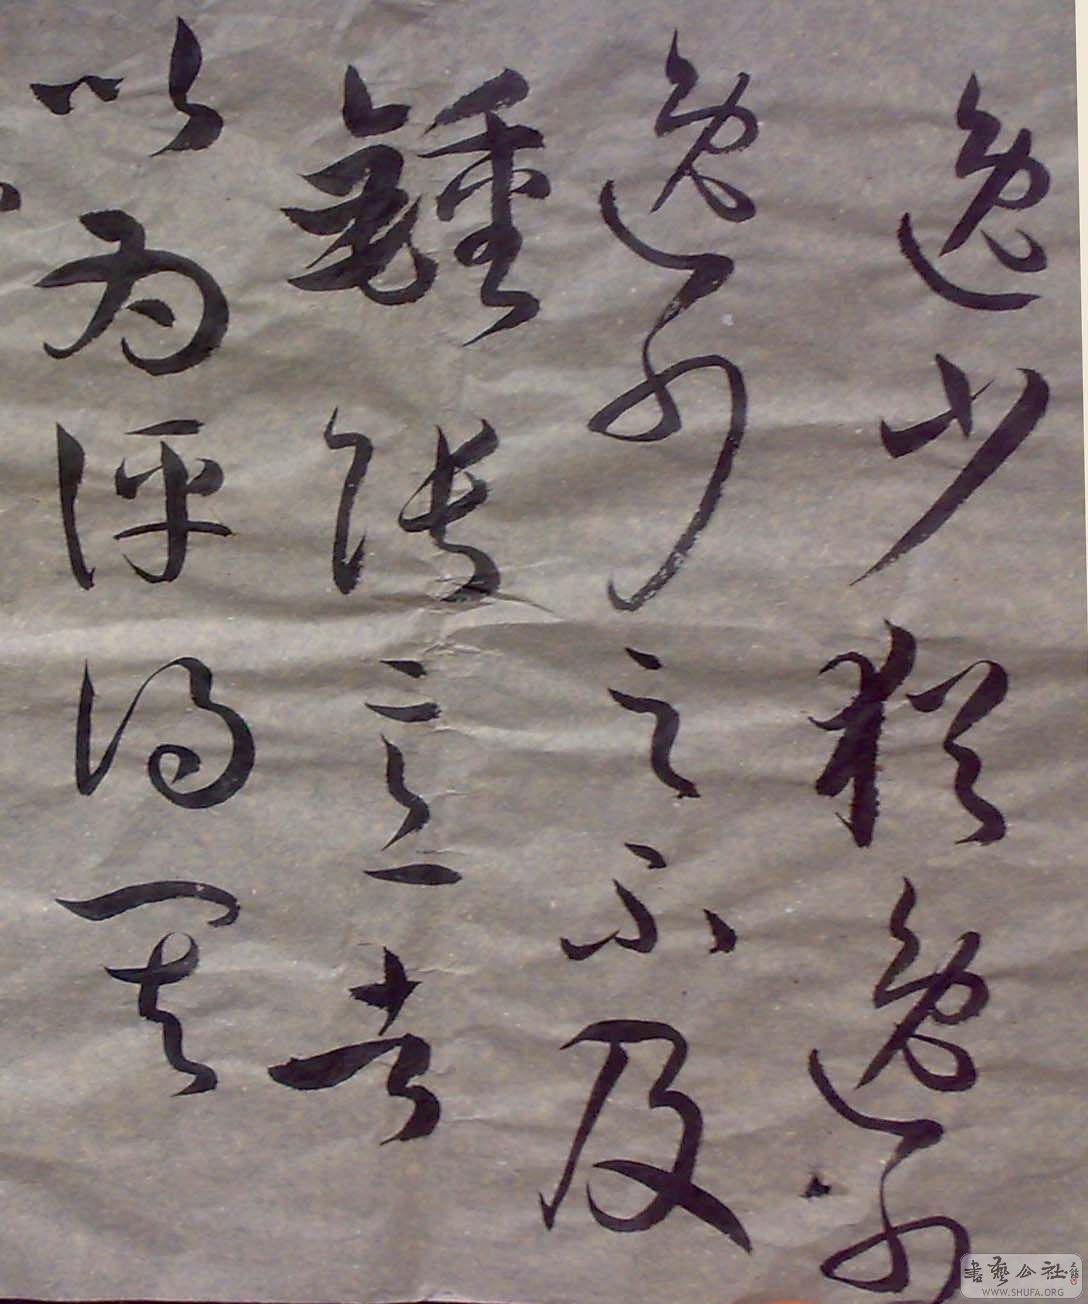 逸少猶逸少
逸少之不及
鍾張意者
以為評得其
書藝公社
WWW.SHUFA.ORG